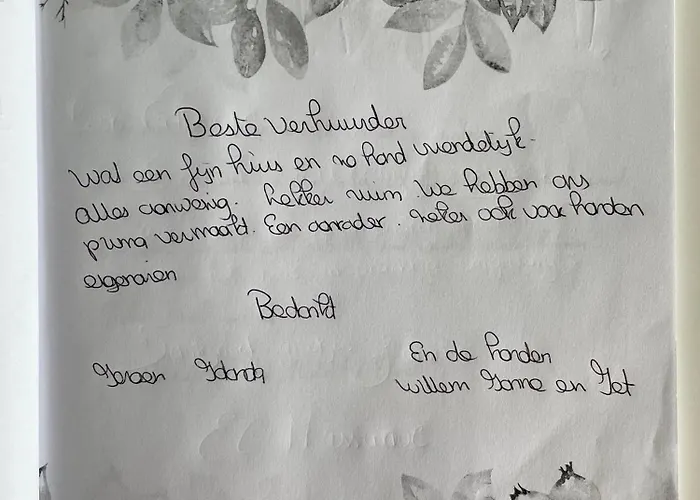 Beste verhuurder
Wat een fijn huis en zo hond vriendelijk.
alles aanwezig. Lekker ruim. We hebben ons
prima vermaakt. Een aanrader. zeker ook voor honden
eigenaren
Bedankt
Jeroen
En de honden
willem en Jet